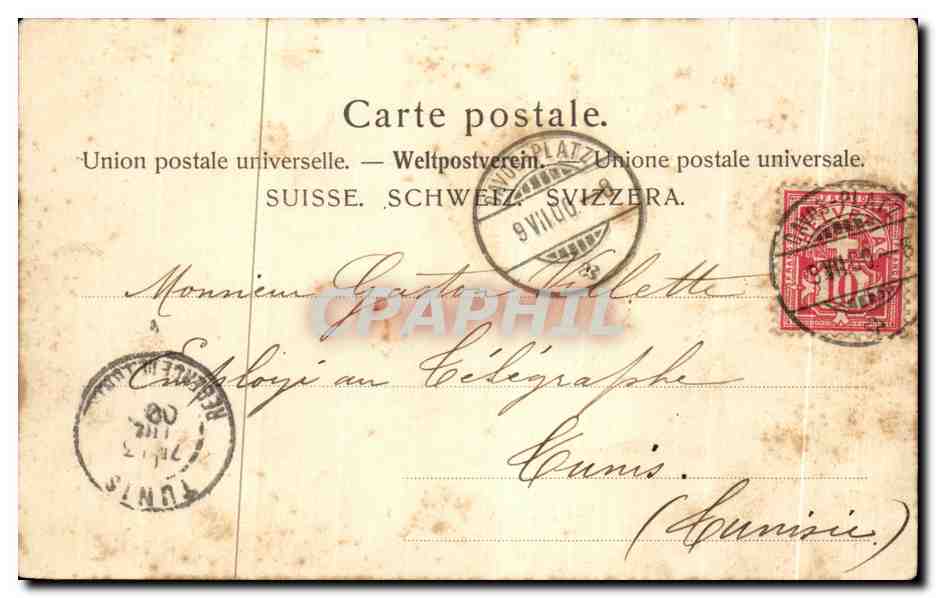 Carte postale.
Union postale universelle. — Weltpostverein. — Unione postale universale.
SUISSE. SCHWEIZ. SVIZZERA.
DAVOS-PLATZ
9.VII.00.
HELVETIA
10
Monsieur Gaston Villette
CPAPHIL
Employé au Télégraphe
Tunis.
(Tunisie)
TUNIS
JUIL
00